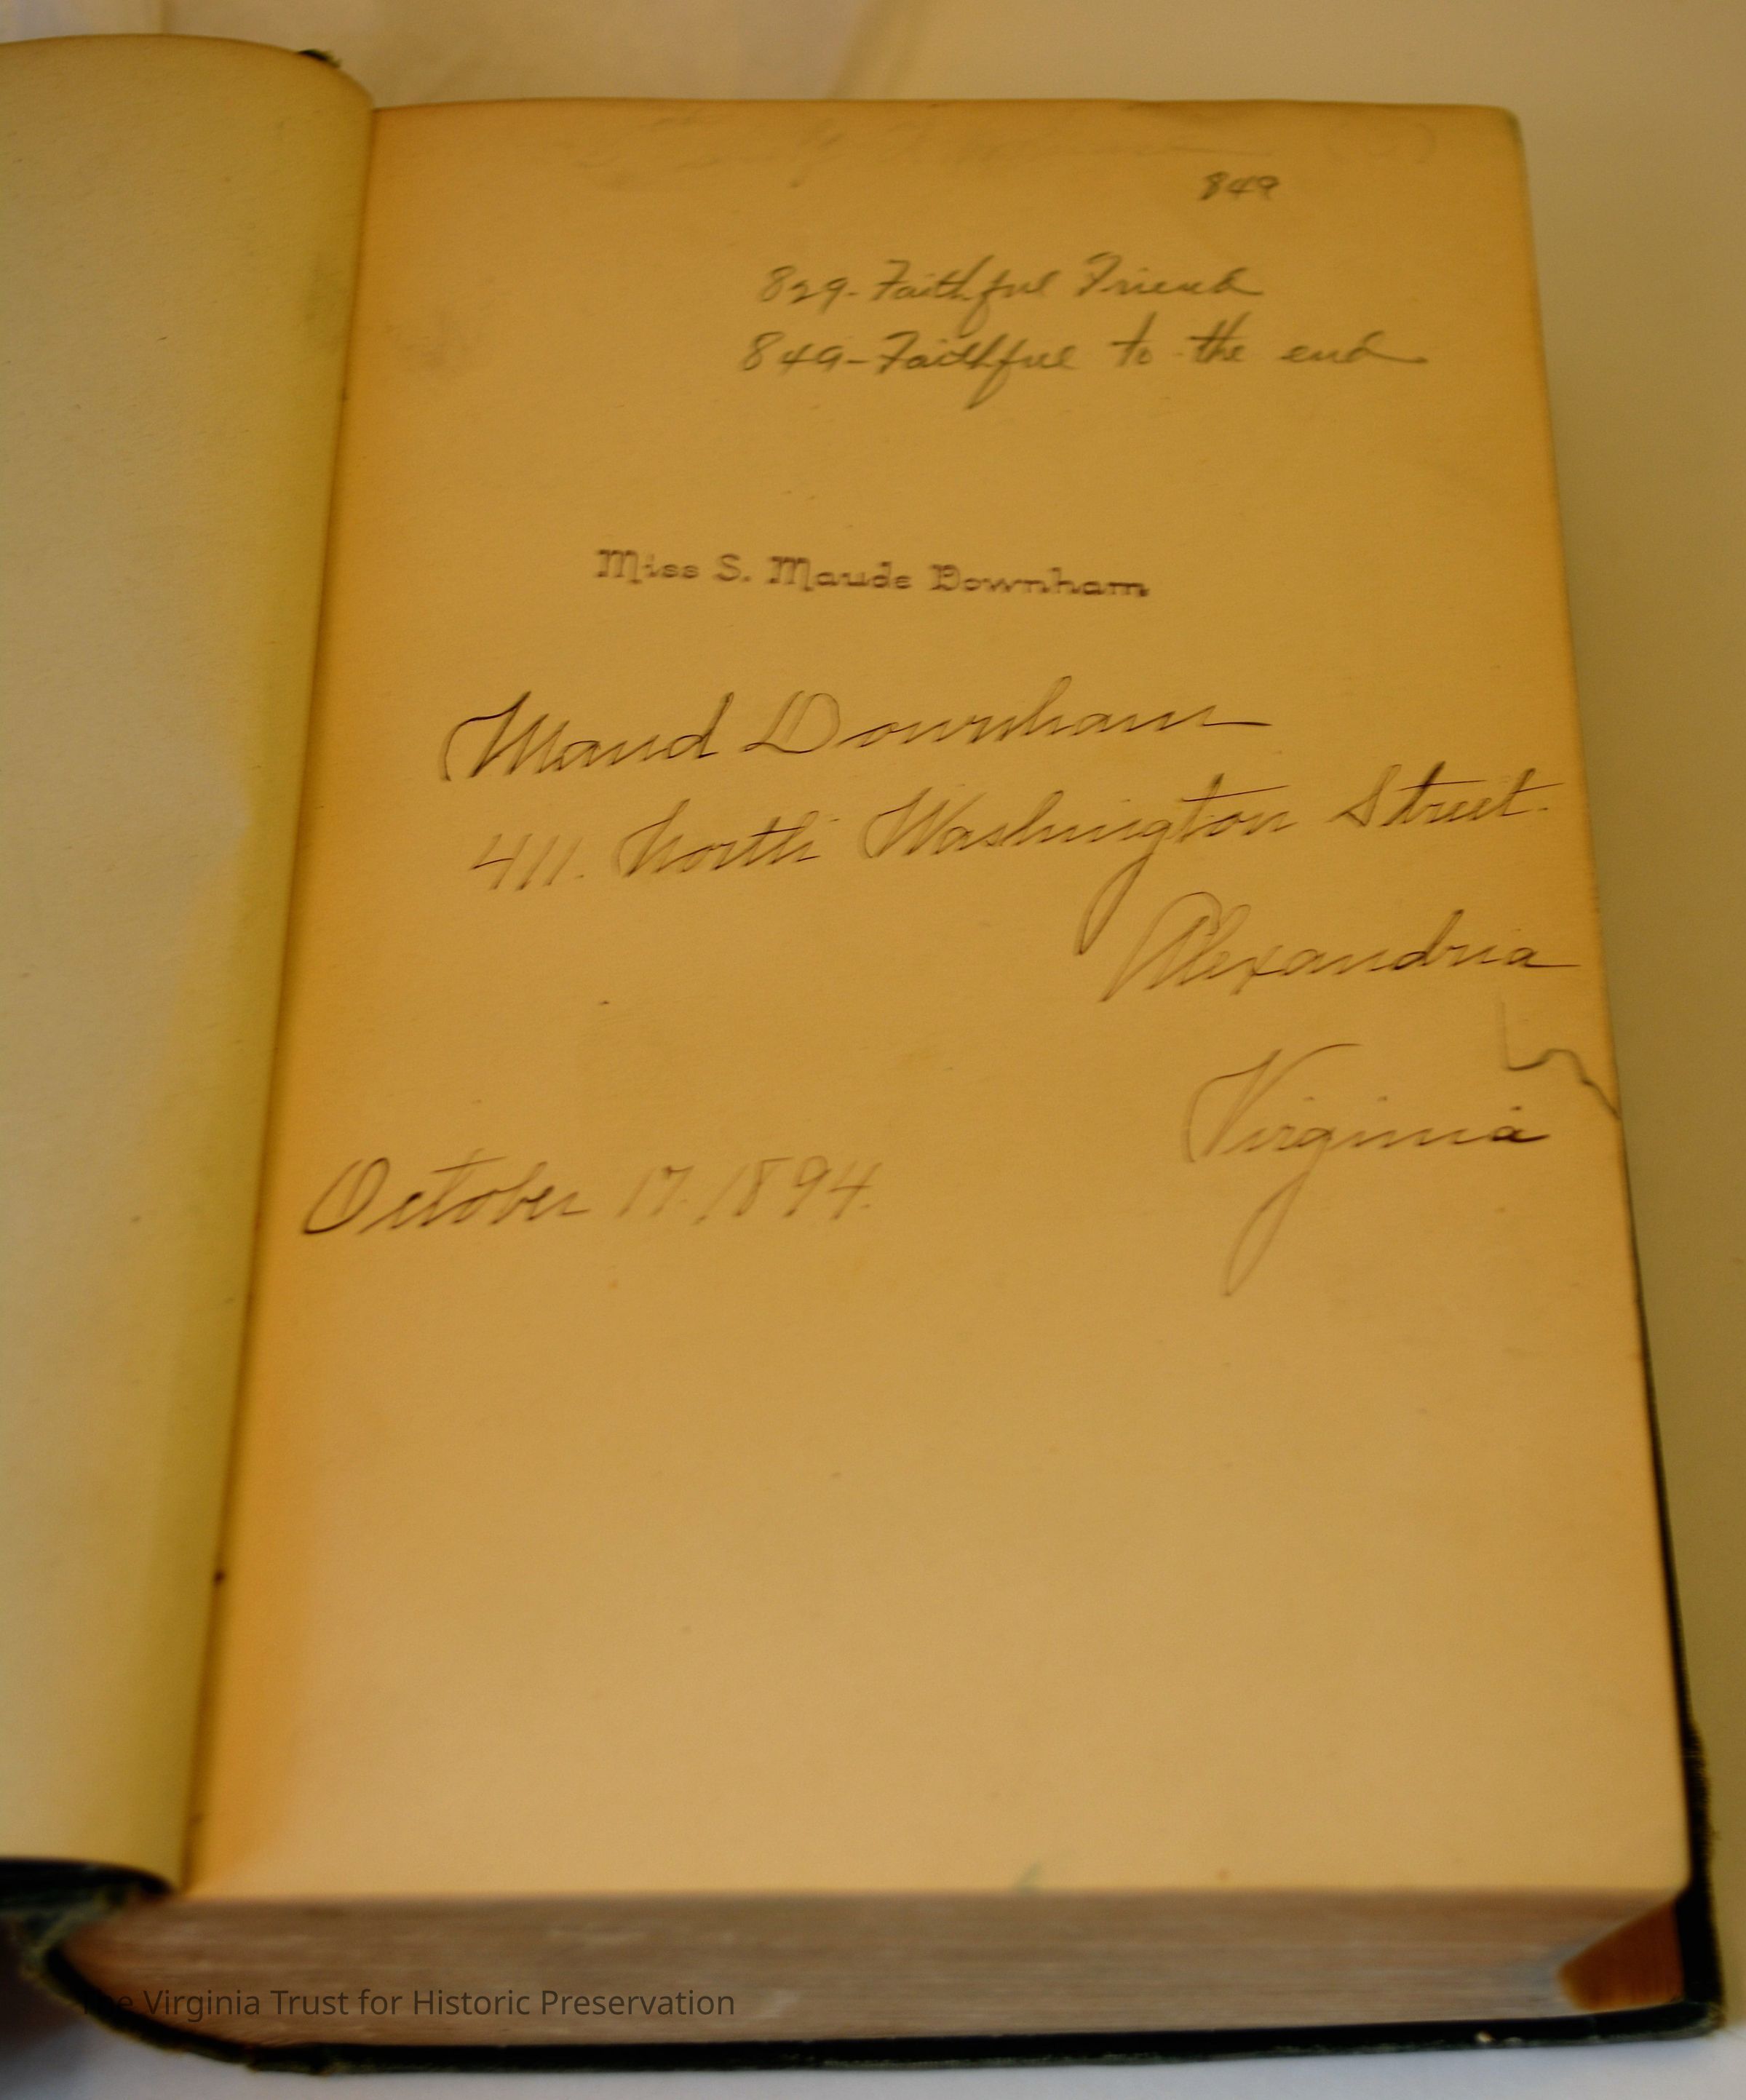 849
829-Faithful Friend
849-Faithful to the end
Miss S. Maude Downham
Maud Downham
411. North Washington Street.
Alexandria
Virginia
October 17. 1894.
The Virginia Trust for Historic Preservation